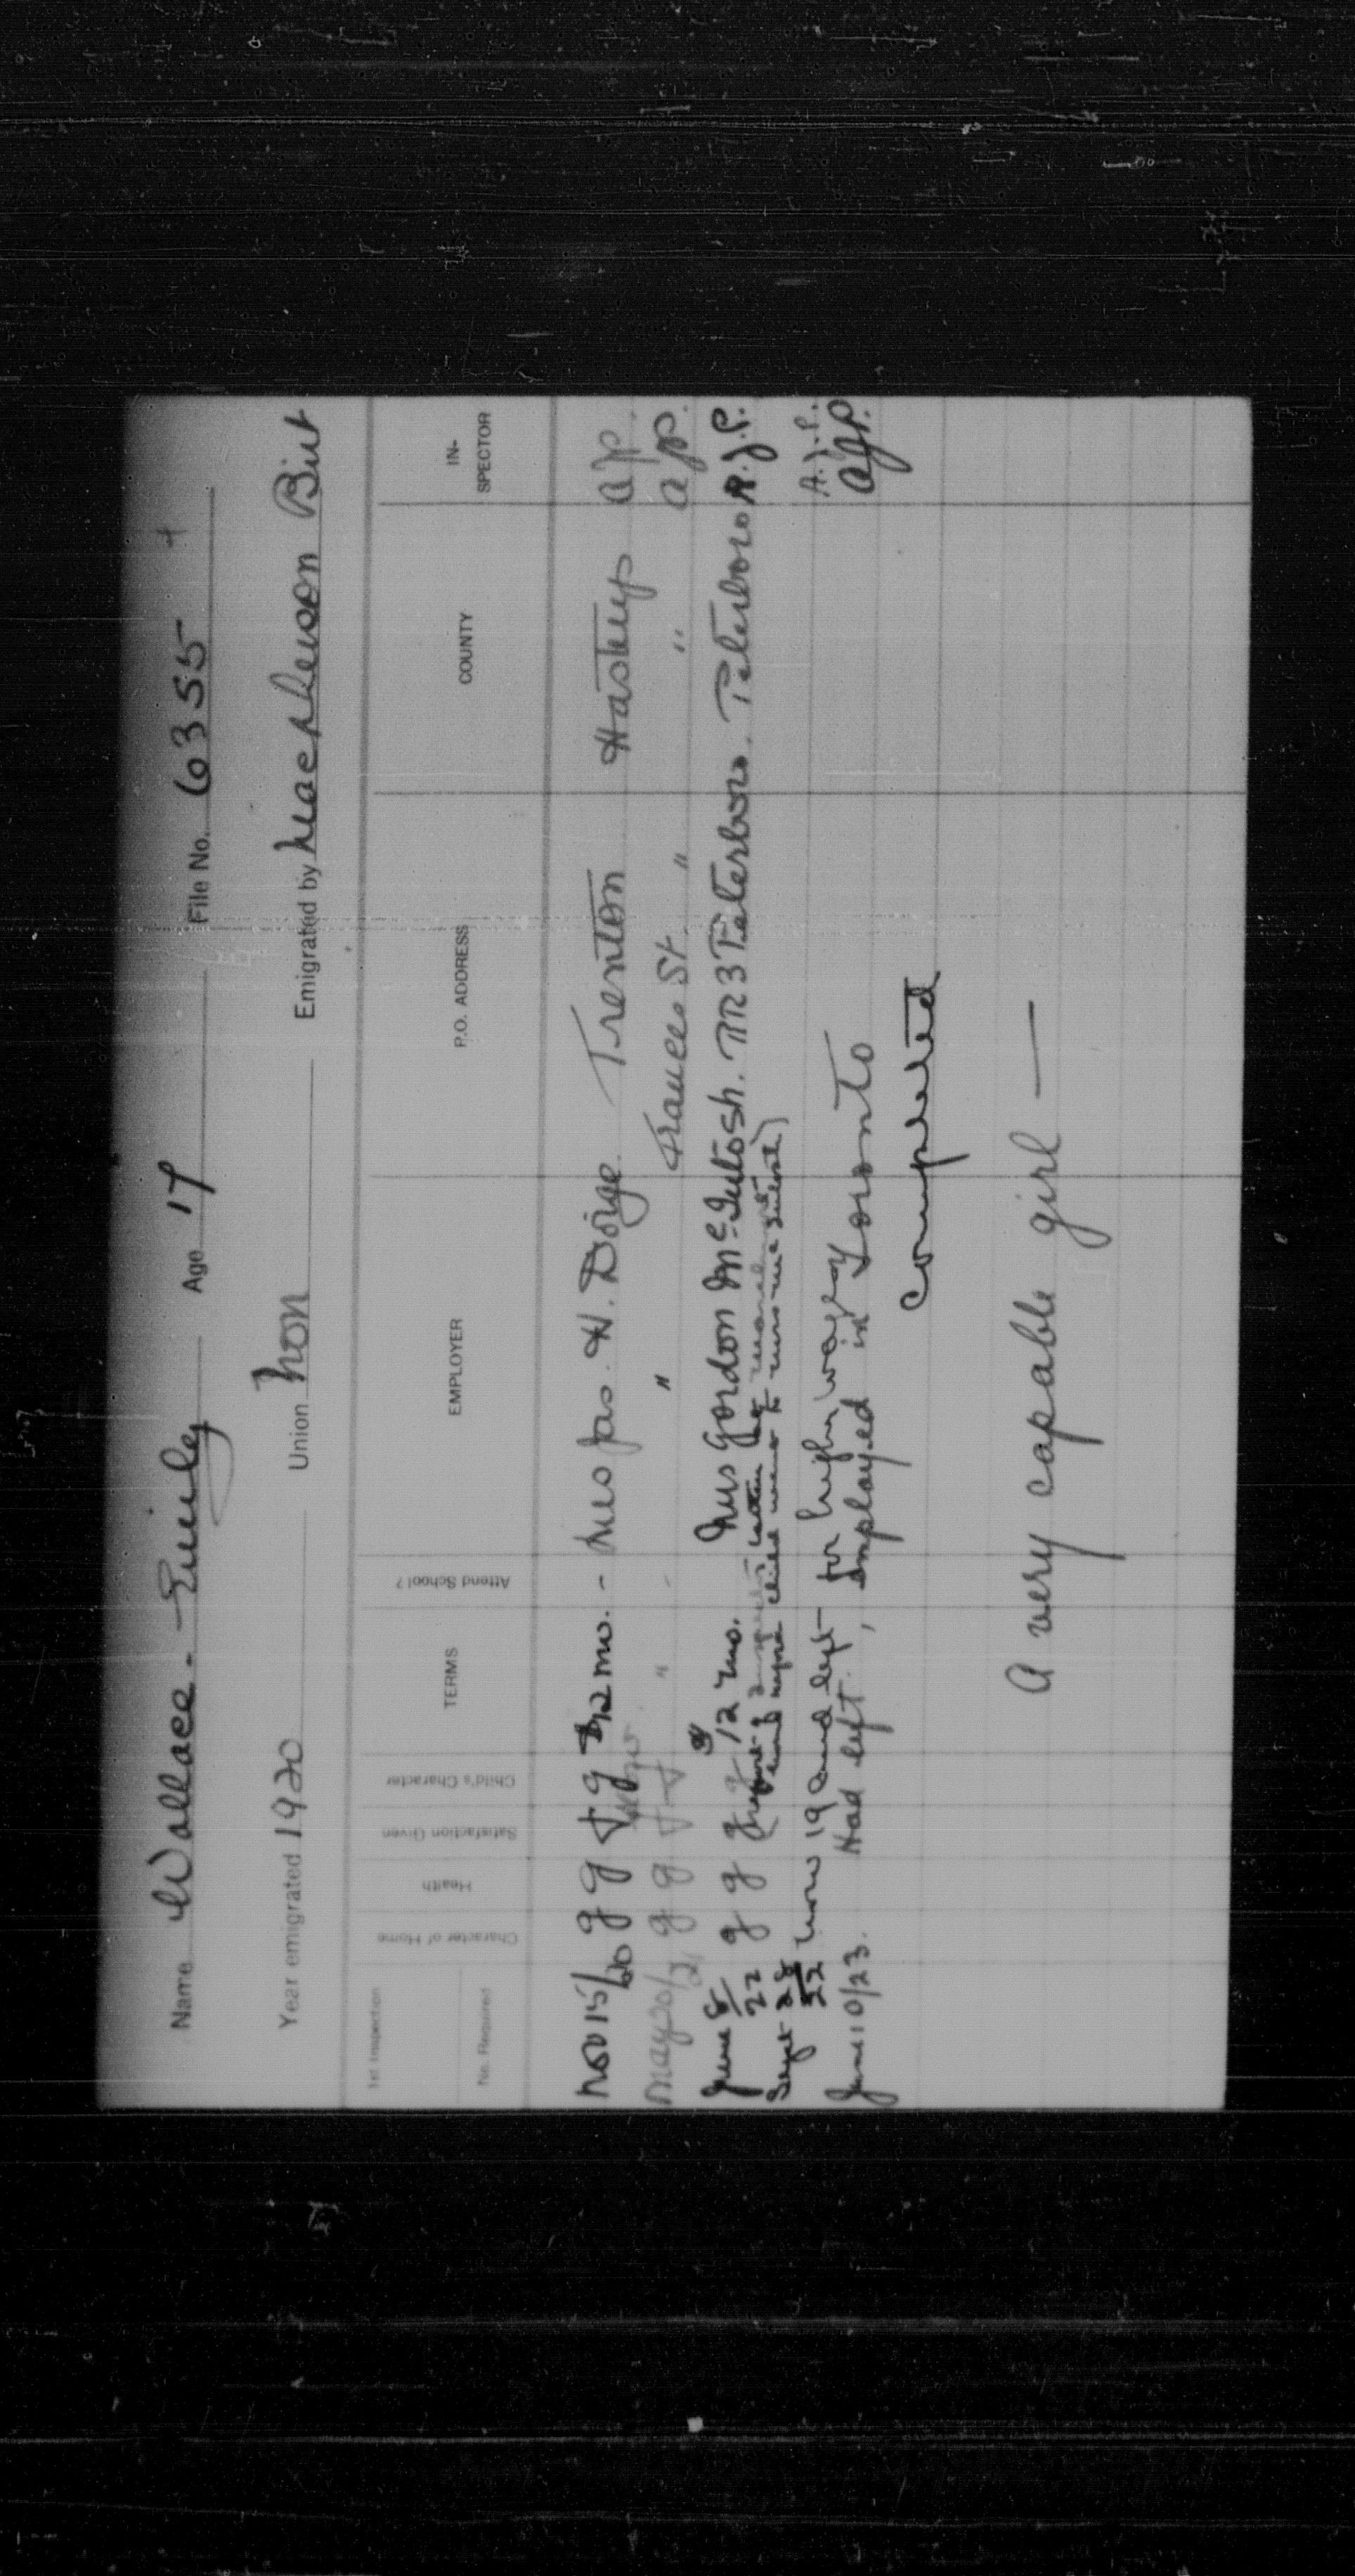 Name Wallace - Emily Age 17 File No. 6355 +
Year emigrated 1920 Union non Emigrated by Macpherson Birt
1st Inspection
No. Required
Character of Home
Health
Satisfaction Given
Child's Character
TERMS
Attend School?
EMPLOYER
P.O. ADDRESS
COUNTY
IN-
SPECTOR
Nov 15/20 g g f g 12 mo. - Mrs Jas. H. Dorge Trenton Hastings AJP.
May 20/21 g g f f " - " Frances St. " " AJP.
June 8/22 g g g g 12 mo. Mrs Gordon McIntosh. RR3 Peterboro. Peterboro A.J.P.
Sept 28/22 now 19 and left for higher wages A.J.P.
June 10/23. Had left, employed in Toronto AJP.
Completed
A very capable girl —